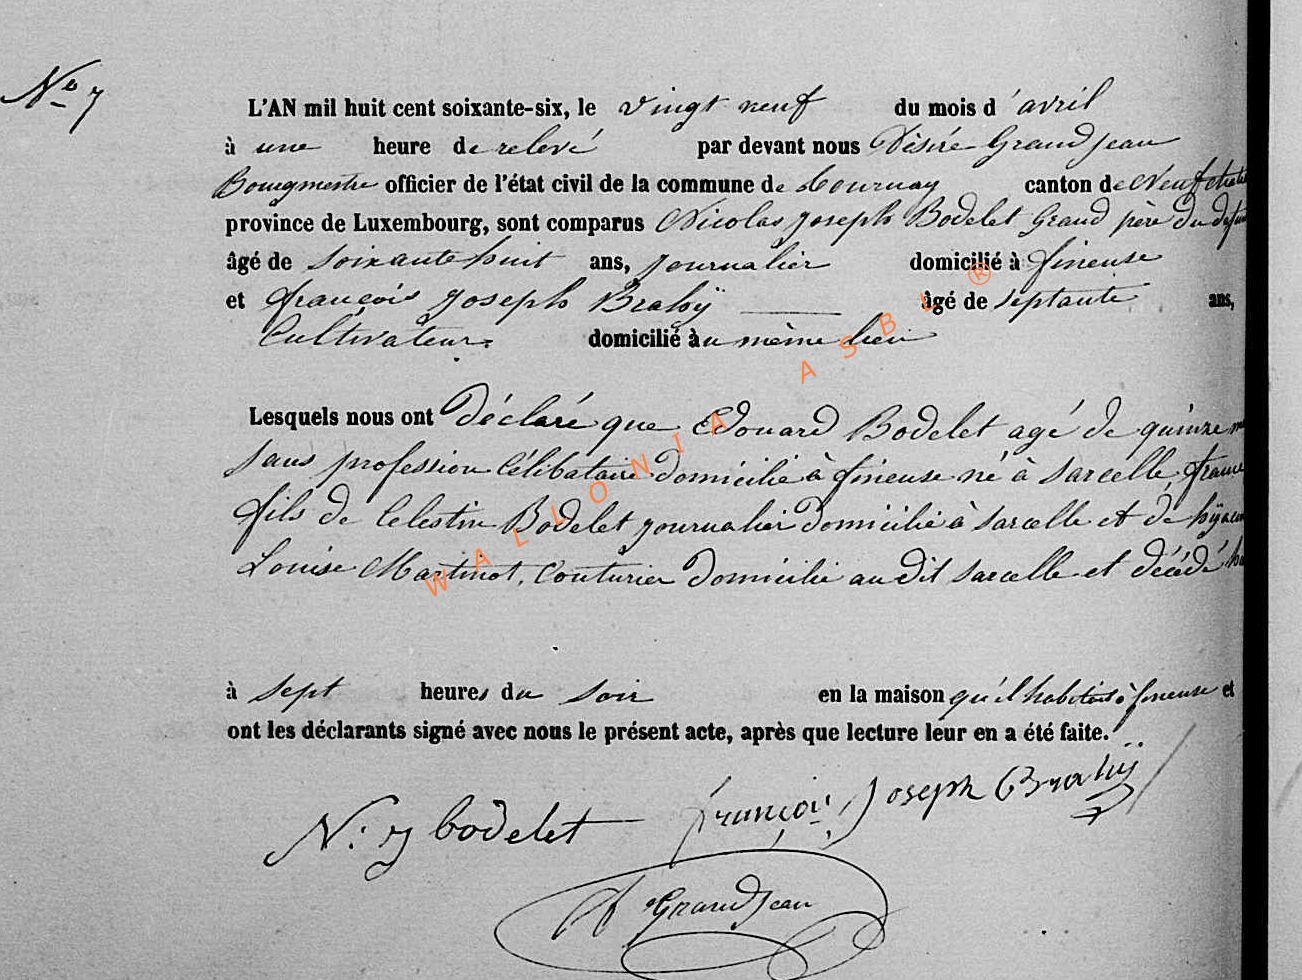 No 7
L'AN mil huit cent soixante-six, le vingt neuf du mois d'avril
à une heure de relevé par devant nous Désiré Grandjean
Bourgmestre officier de l'état civil de la commune de Tournay canton de Neufchateau
province de Luxembourg, sont comparus Nicolas Joseph Bodelet Grand père du defunt
âgé de soixante huit ans, journalier domicilié à fineuse
et françois Joseph Brahÿ âgé de septante ans,
Cultivateur domicilié à au même lieu
Lesquels nous ont déclaré que Edouard Bodelet agé de quinze
sans profession Célibataire domicilié à fineuse né à Sarcelle, france
fils de Celestin Bodelet journalier domicilié à Sarcelle et de
Louise Martinot, Couturier domicilié au dit Sarcelle et décédé
à sept heures du soir en la maison qu'il habitait à fineuse et
ont les déclarants signé avec nous le présent acte, après que lecture leur en a été faite.
N: J bodelet françois Joseph Brahÿ
Grandjean
WALLONIA ASBL ®